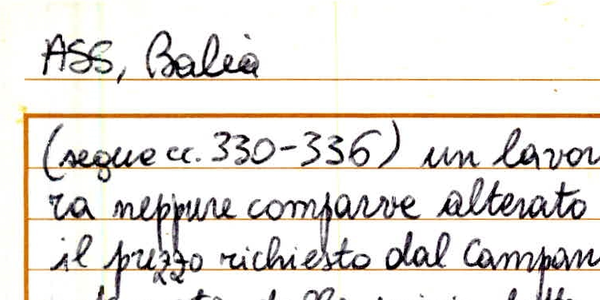 ASS, Balia
(segue cc. 330-336) un lavor
ra neppure comparve alterato
il prezzo richiesto dal Campan